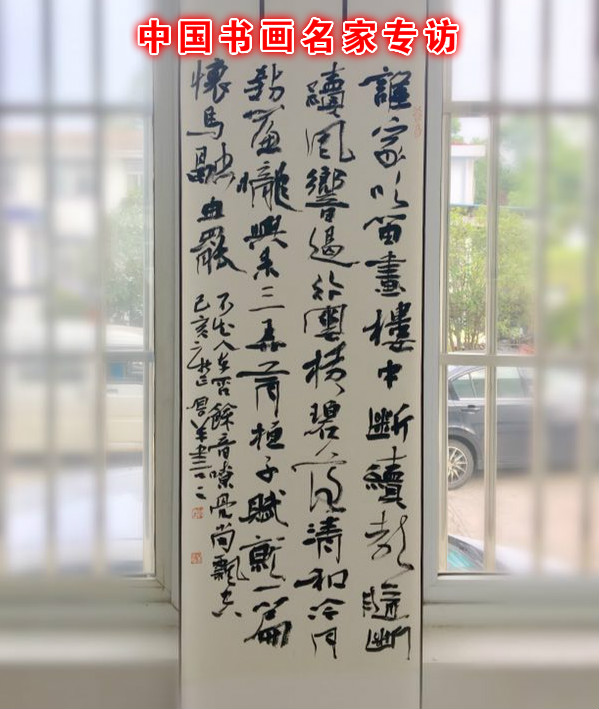 中国书画名家专访
誰家吹笛畫樓中斷續聲隨斷
續風響遏行雲橫碧落清和冷月
到簾櫳興来三弄有桓子賦就一篇
懷馬融曲罷
不知人在否餘音嘹亮尚飄空
己亥